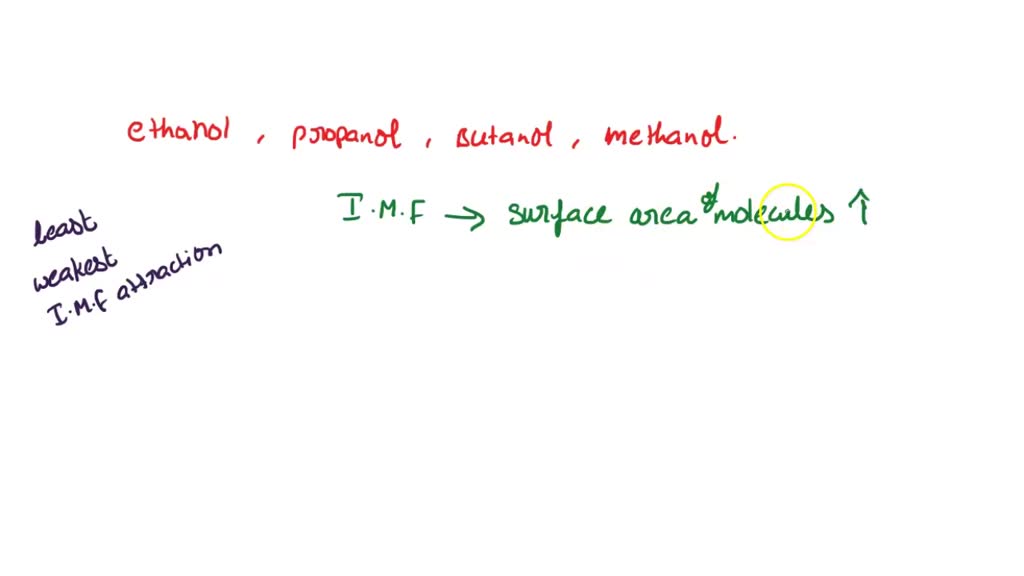 ethanol, propanol, Butanol, methanol.
I.M.F → surface area of molecules ↑
least
weakest
I.M.F attraction